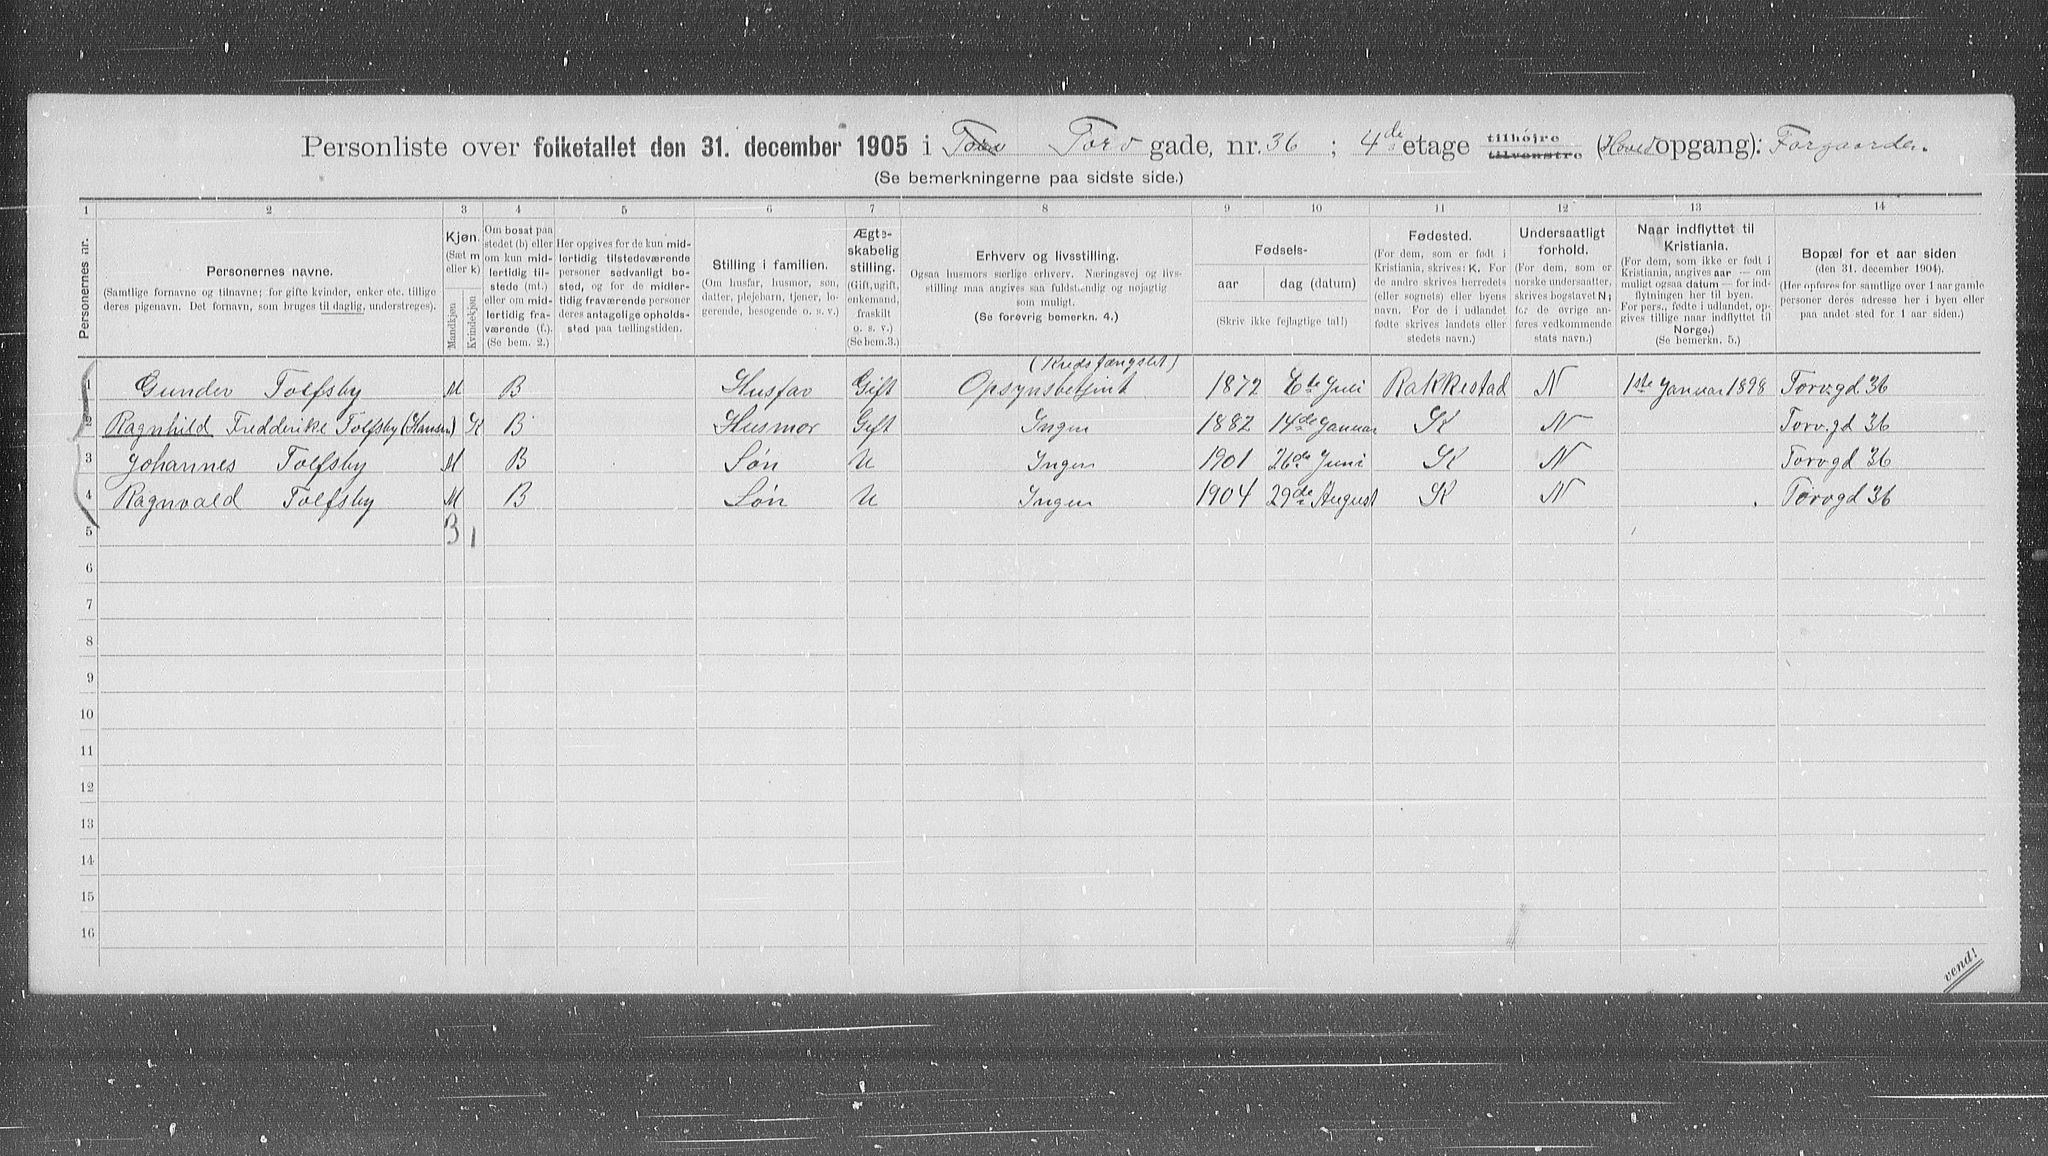 Personliste over folketallet den 31. december 1905 i Torv Torv gade, nr. 36 ; 4de etage tilhøjre tilvenstre (Hoved opgang): Forgaarden.
(Se bemerkningerne paa sidste side.)
1 2 3 4 5 6 7 8 9 10 11 12 13 14
Personernes nr.
Personernes navne.
(Samtlige fornavne og tilnavne; for gifte kvinder, enker etc. tillige
deres pigenavn. Det fornavn, som bruges til daglig, understreges).
Kjøn.
(Sæt m
eller k)
Mandkjøn
Kvindekjøn
Om bosat paa
stedet (b) eller
om kun mid-
lertidig til-
stede (mt.)
eller om mid-
lertidig fra-
værende (f.).
(Se bem. 2.)
Her opgives for de kun mid-
lertidig tilstedeværende
personer sedvanligt bo-
sted, og for de midler-
tidig fraværende personer
deres antagelige opholds-
sted paa tællingstiden.
Stilling i familien.
(Om husfar, husmor, søn,
datter, plejebarn, tjener, lo-
gerende, besøgende o. s. v.)
Ægte-
skabelig
stilling.
(Gift, ugift,
enkemand,
fraskilt
o. s. v.)
(Se bem.3.)
Erhverv og livsstilling.
Ogsaa husmors særlige erhverv. Næringsvej og livs-
stilling maa angives saa fuldstændig og nøjagtig
som muligt.
(Se forøvrig bemerkn. 4.)
Fødsels-
aar dag (datum)
(Skriv ikke fejlagtige tal!)
Fødested.
(For dem, som er født i
Kristiania, skrives: K. For
de andre skrives herredets
(eller sognets) eller byens
navn. For de i udlandet
fødte skrives landets eller
stedets navn.)
Undersaatligt
forhold.
(For dem, som er
norske undersaatter,
skrives bogstavet N;
for de øvrige an-
føres vedkommende
stats navn.)
Naar indflyttet til
Kristiania.
(For dem, som ikke er født i
Kristiania, angives aar — om
muligt ogsaa datum — for ind-
flytningen her til byen.
For pers., fødte i udlandet, op-
gives tillige naar indflyttet til
Norge.)
(Se bemerkn. 5.)
Bopæl for et aar siden
(den 31. december 1904).
(Her opføres for samtlige over 1 aar gamle
personer deres adresse her i byen eller
paa andet sted for 1 aar siden.)
(Kredsfængslet)
1 Gunder Tolfsby M B Husfar Gift Opsynsbetjent 1872 6te Juli Rakkestad N 1ste Januar 1898 Torvgd 36
2 Ragnhild Fredderike Tolfsby (Hansen) K B Husmor Gift Ingen 1882 14de Januar K N Torv.gd 36
3 Johannes Tolfsby M B Søn U Ingen 1901 26de Juni K N Torvgd 36
4 Ragnvald Tolfsby M B Søn U Ingen 1904 29de August K N Torvgd 36
5 3 1
6
7
8
9
10
11
12
13
14
15
16
vend!